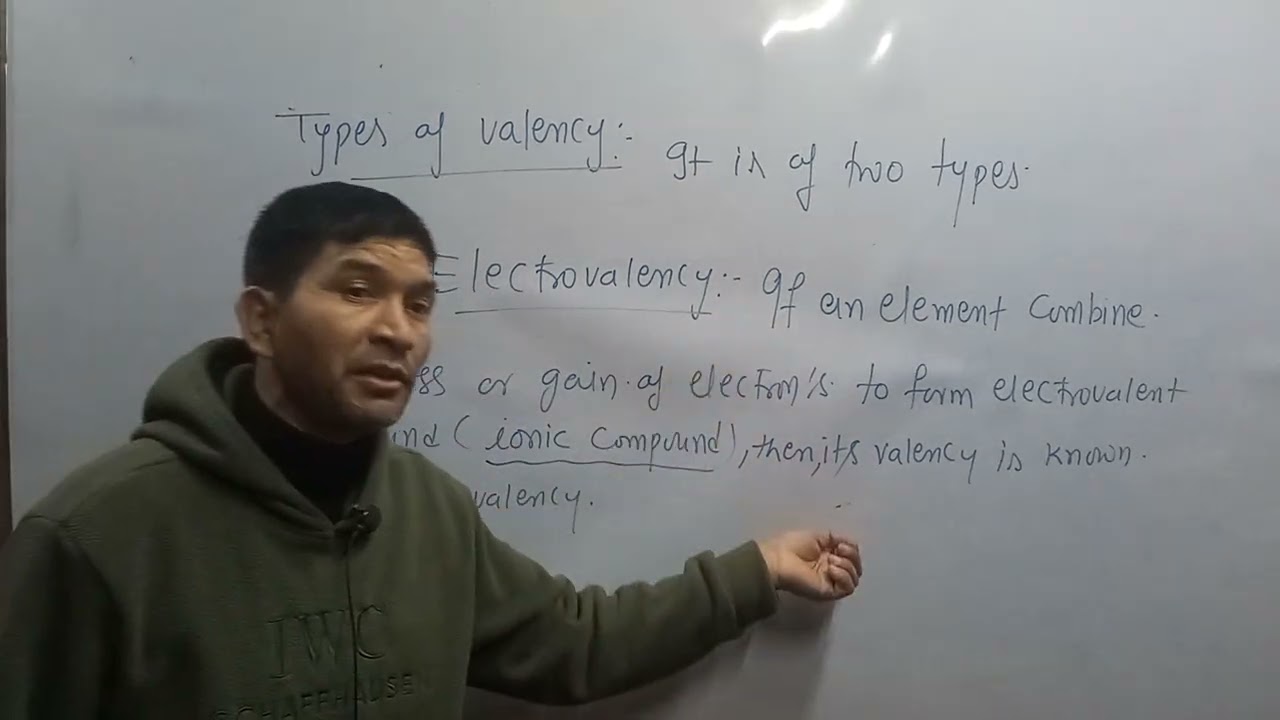 Types of valency:- It is of two types.
Electrovalency:- If an element combine.
ss or gain of electron's to form electrovalent
und (ionic compound), then, it's valency is known.
valency.
IWC
SCHAFFHAUSEN